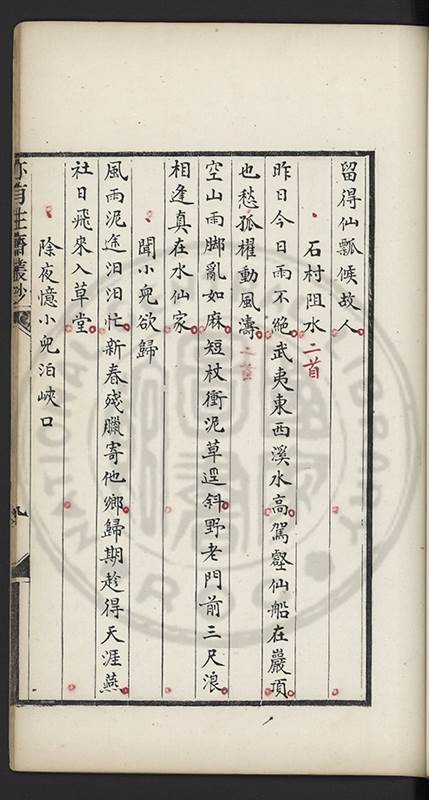 留得仙瓢候故人
石村阻水二首
昨日今日雨不絕武夷東西溪水高駕壑仙船在巖頂
也愁孤櫂動風濤
空山雨脚亂如麻短杖衝泥草逕斜野老門前三尺浪
相逢真在水仙家
聞小兒欲歸
風雨泥途汨汨忙新春殘臘寄他鄉歸期趁得天涯燕
社日飛來入草堂
除夜憶小兒泊峽口
亦有生齋叢鈔
九